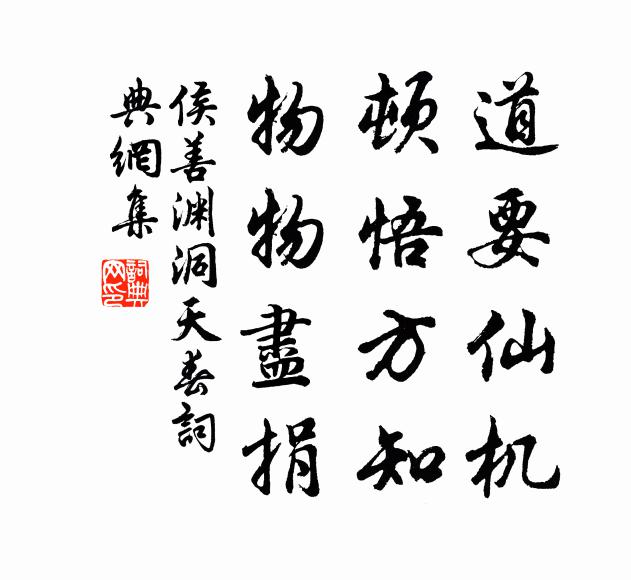 道要仙机
頓悟方知
物物盡捐
侯善渊洞天春詞
典網集
詞典网印